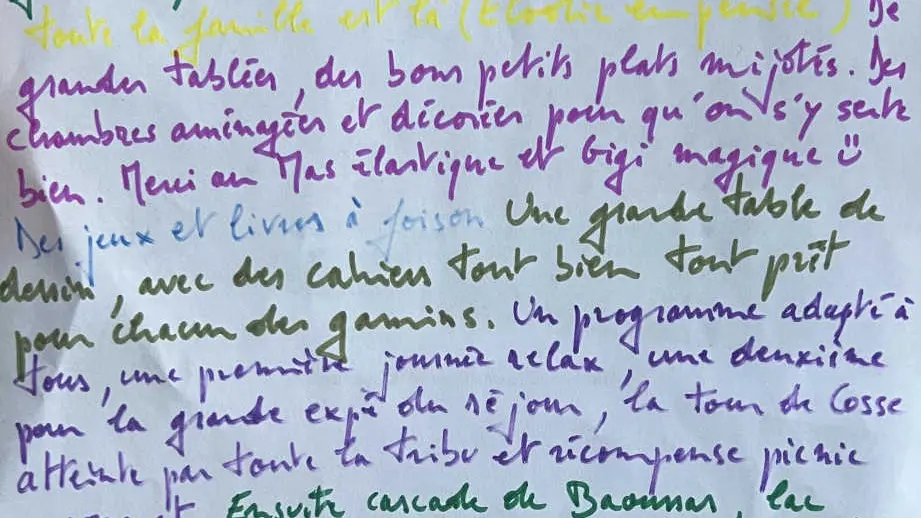 toute la famille est là (Elodie en pensée) De
grandes tablées, des bons petits plats mijotés. Des
chambres aménagées et décorées pour qu'on s'y sente
bien. Merci au Mas élastique et Gigi magique
Des jeux et livres à foison Une grande table de
dessin, avec des cahiers tout bien tout prêt
pour chacun des gamins. Un programme adapté à
tous, une première journée relax, une deuxième
pour la grande expé du séjour, la tour de Cosse
atteinte par toute la tribu et récompense picnic
Ensuite cascade de Baoussas, lac